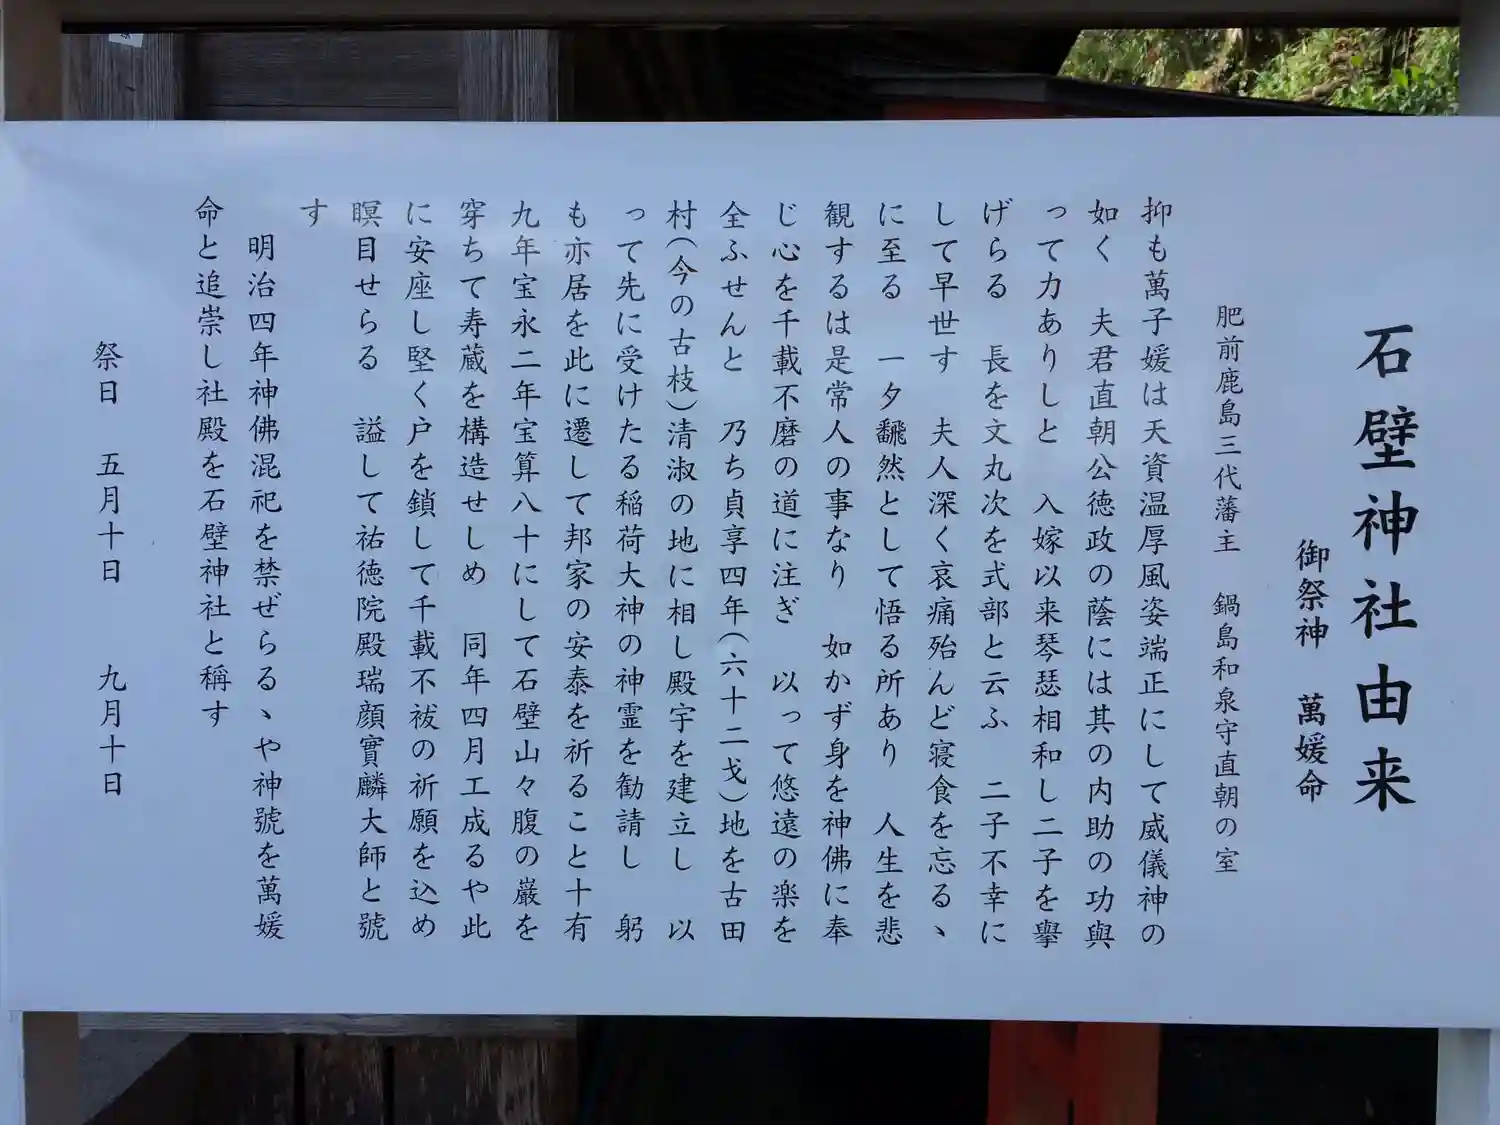 石壁神社由来
御祭神　萬媛命
肥前鹿島三代藩主　鍋島和泉守直朝の室
抑も萬子媛は天資温厚風姿端正にして威儀神の
如く　夫君直朝公徳政の蔭には其の内助の功與
って力ありしと　入嫁以来琴瑟相和し二子を擧
げらる　長を文丸次を式部と云ふ　二子不幸に
して早世す　夫人深く哀痛殆んど寝食を忘るヽ
に至る　一夕飜然として悟る所あり　人生を悲
観するは是常人の事なり　如かず身を神佛に奉
じ心を千載不磨の道に注ぎ　以って悠遠の楽を
全ふせんと　乃ち貞享四年(六十二戈)地を古田
村(今の古枝)清淑の地に相し殿宇を建立し　以
って先に受けたる稲荷大神の神霊を勧請し　躬
も亦居を此に遷して邦家の安泰を祈ること十有
九年宝永二年宝算八十にして石壁山々腹の巌を
穿ちて寿蔵を構造せしめ　同年四月工成るや此
に安座し堅く戸を鎖して千載不祓の祈願を込め
瞑目せらる　謚して祐徳院殿瑞顔實麟大師と號
す
明治四年神佛混祀を禁ぜらるヽや神號を萬媛
命と追崇し社殿を石壁神社と稱す
祭日　五月十日　九月十日